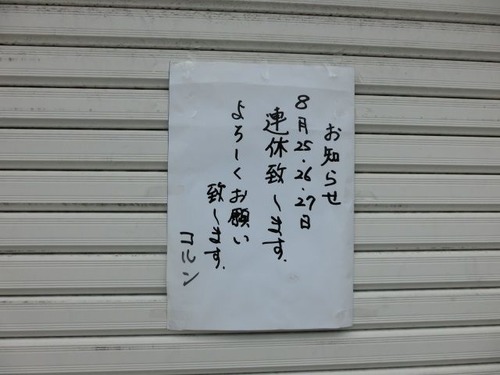 お知らせ
8月25.26.27日
連休致します.
よろしくお願い
致します.
コルン